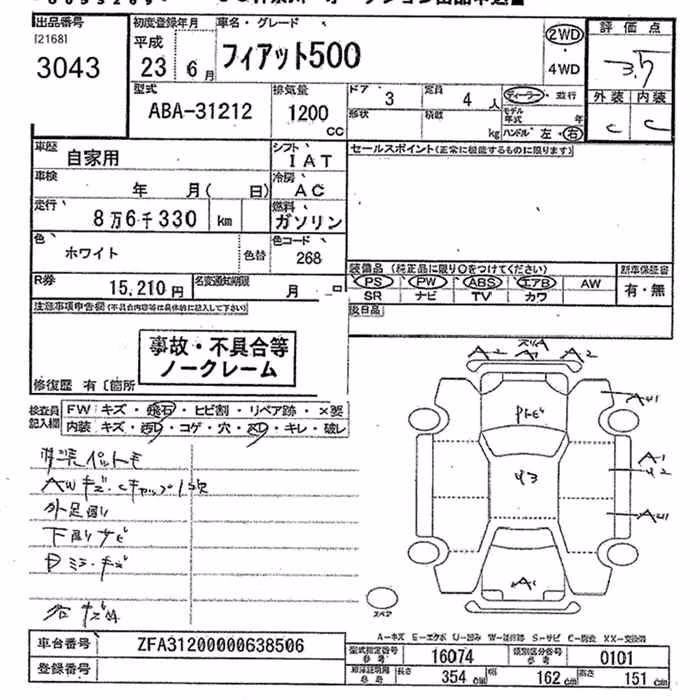 出品番号
[2168]
3043
初度登録年月
平成
23 6月
車名・グレード
フィアット500
2WD
・
4WD
評価点
3.5
型式
ABA-31212
排気量
1200
CC
ドア 3
定員 4 人
ディーラー・並行
形状
積数 kg
モデル年式 年
ハンドル 左・右
外装 内装
C C
車歴
自家用
シフト
IAT
セールスポイント(正常に機能するものに限ります)
車検
年 月( 日)
冷房
AC
走行
8万6千330 km
燃料
ガソリン
色
ホワイト
色替
色コード
268
R券
15,210円
名変通知期限
月 日
装備品(純正品に限り○をつけてください)
PS PW ABS エアB AW
SR ナビ TV カワ
新車保証書
有・無
注意事項申告欄(不具合内容等は具体的に記入して下さい)
後日品
事故・不具合等
ノークレーム
修復歴 有〔箇所
検査員
記入欄
FW キズ・飛石・ヒビ割・リペア跡・×要
内装 キズ・汚レ・コゲ・穴・スレ・キレ・破レ
外足廻り
下廻りサビ
A2 A2
A1
A1
スペア
A-キズ E-エクボ U-凹み W-補修跡 S-サビ C-腐食 XX-交換済
車台番号
ZFA31200000638506
登録番号
型式指定番号
参考
16074
類別区分番号
参考
0101
参考
長さ 354 cm 幅 162 cm 高さ 151 cm